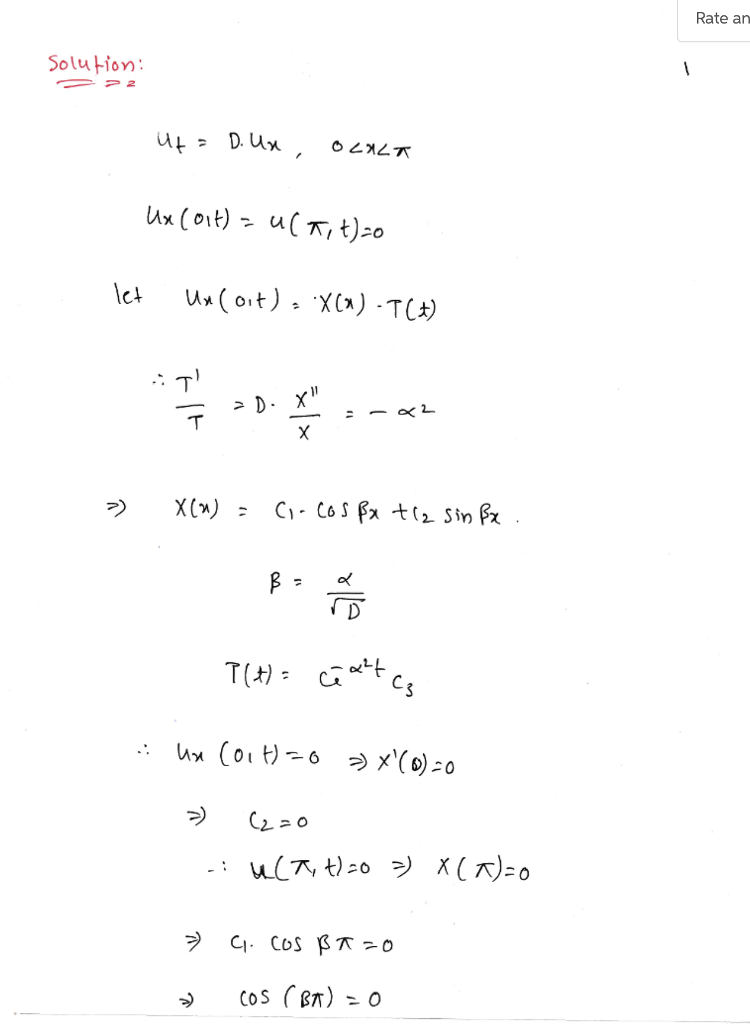 Rate an
Solution:
1
ut = D. ux, 0<x<π
ux(0,t) = u(π,t)=0
let ux(0,t) = X(x) · T(t)
∴ T'/T = D. X''/X = - α2
⇒ X(x) = C1. cos βx + C2 sin βx.
β = α/√D
T(t) = e^-α²t C3
∴ ux(0,t)=0 ⇒ X'(0)=0
⇒ C2=0
∴ u(π,t)=0 ⇒ X(π)=0
⇒ C1. cos βπ=0
⇒ cos (βπ) = 0